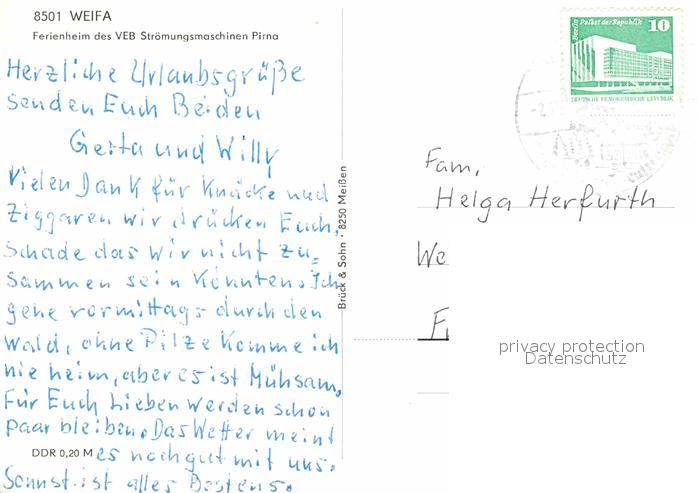 8501 WEIFA
Ferienheim des VEB Strömungsmaschinen Pirna
Herzliche Urlaubsgrüße
senden Euch Beiden
Gerta und Willy
Vielen Dank für Knäcke und
Ziggaren wir drücken Euch.
Schade das wir nicht zu=
sammen sein könnten. Ich
gehe vormittags durch den
Wald, ohne Pilze komme ich
nie heim, aber es ist Mühsam.
Für Euch Lieben werden schon
paar bleiben. Das Wetter meint
DDR 0,20 M es noch gut mit uns.
Sonnst ist alles Bestens.
Brück & Sohn · 8250 Meißen
Berlin Palast der Republik 10
DEUTSCHE DEMOKRATISCHE REPUBLIK
Fam.
Helga Herfurth
We
F
privacy protection
Datenschutz